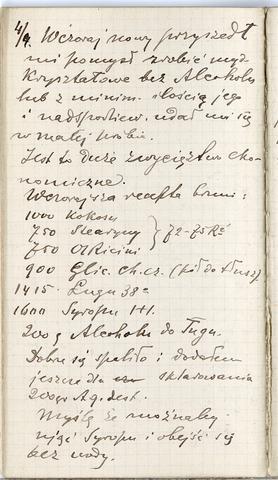 4/9. Wczoraj nowy przyszedł
mi pomysł zrobić myd.
Kryształowe bez Alcoholu
lub z minim. ilością jego
i nadspodziew. udał mi się
w małej próbie.
Jest to duże zwycięstwo eko-
nomiczne.
Wczorajsza recepta brmi:
1000 Kokosu
750 Stearyny } 72-75Ré
750 Ol Ricini
900 Glic. ch. cz. (pół do tłuszcz
1415. Ługu 38°
1600 Syropu 1+1.
200 g Alcoholu do Ługu.
Dobre się spaliło i dodałem
jeszcze dla sklarowania
200 gr Aq. dest.
Myślę że możnaby
ująć Syropu i obejść się
bez wody.